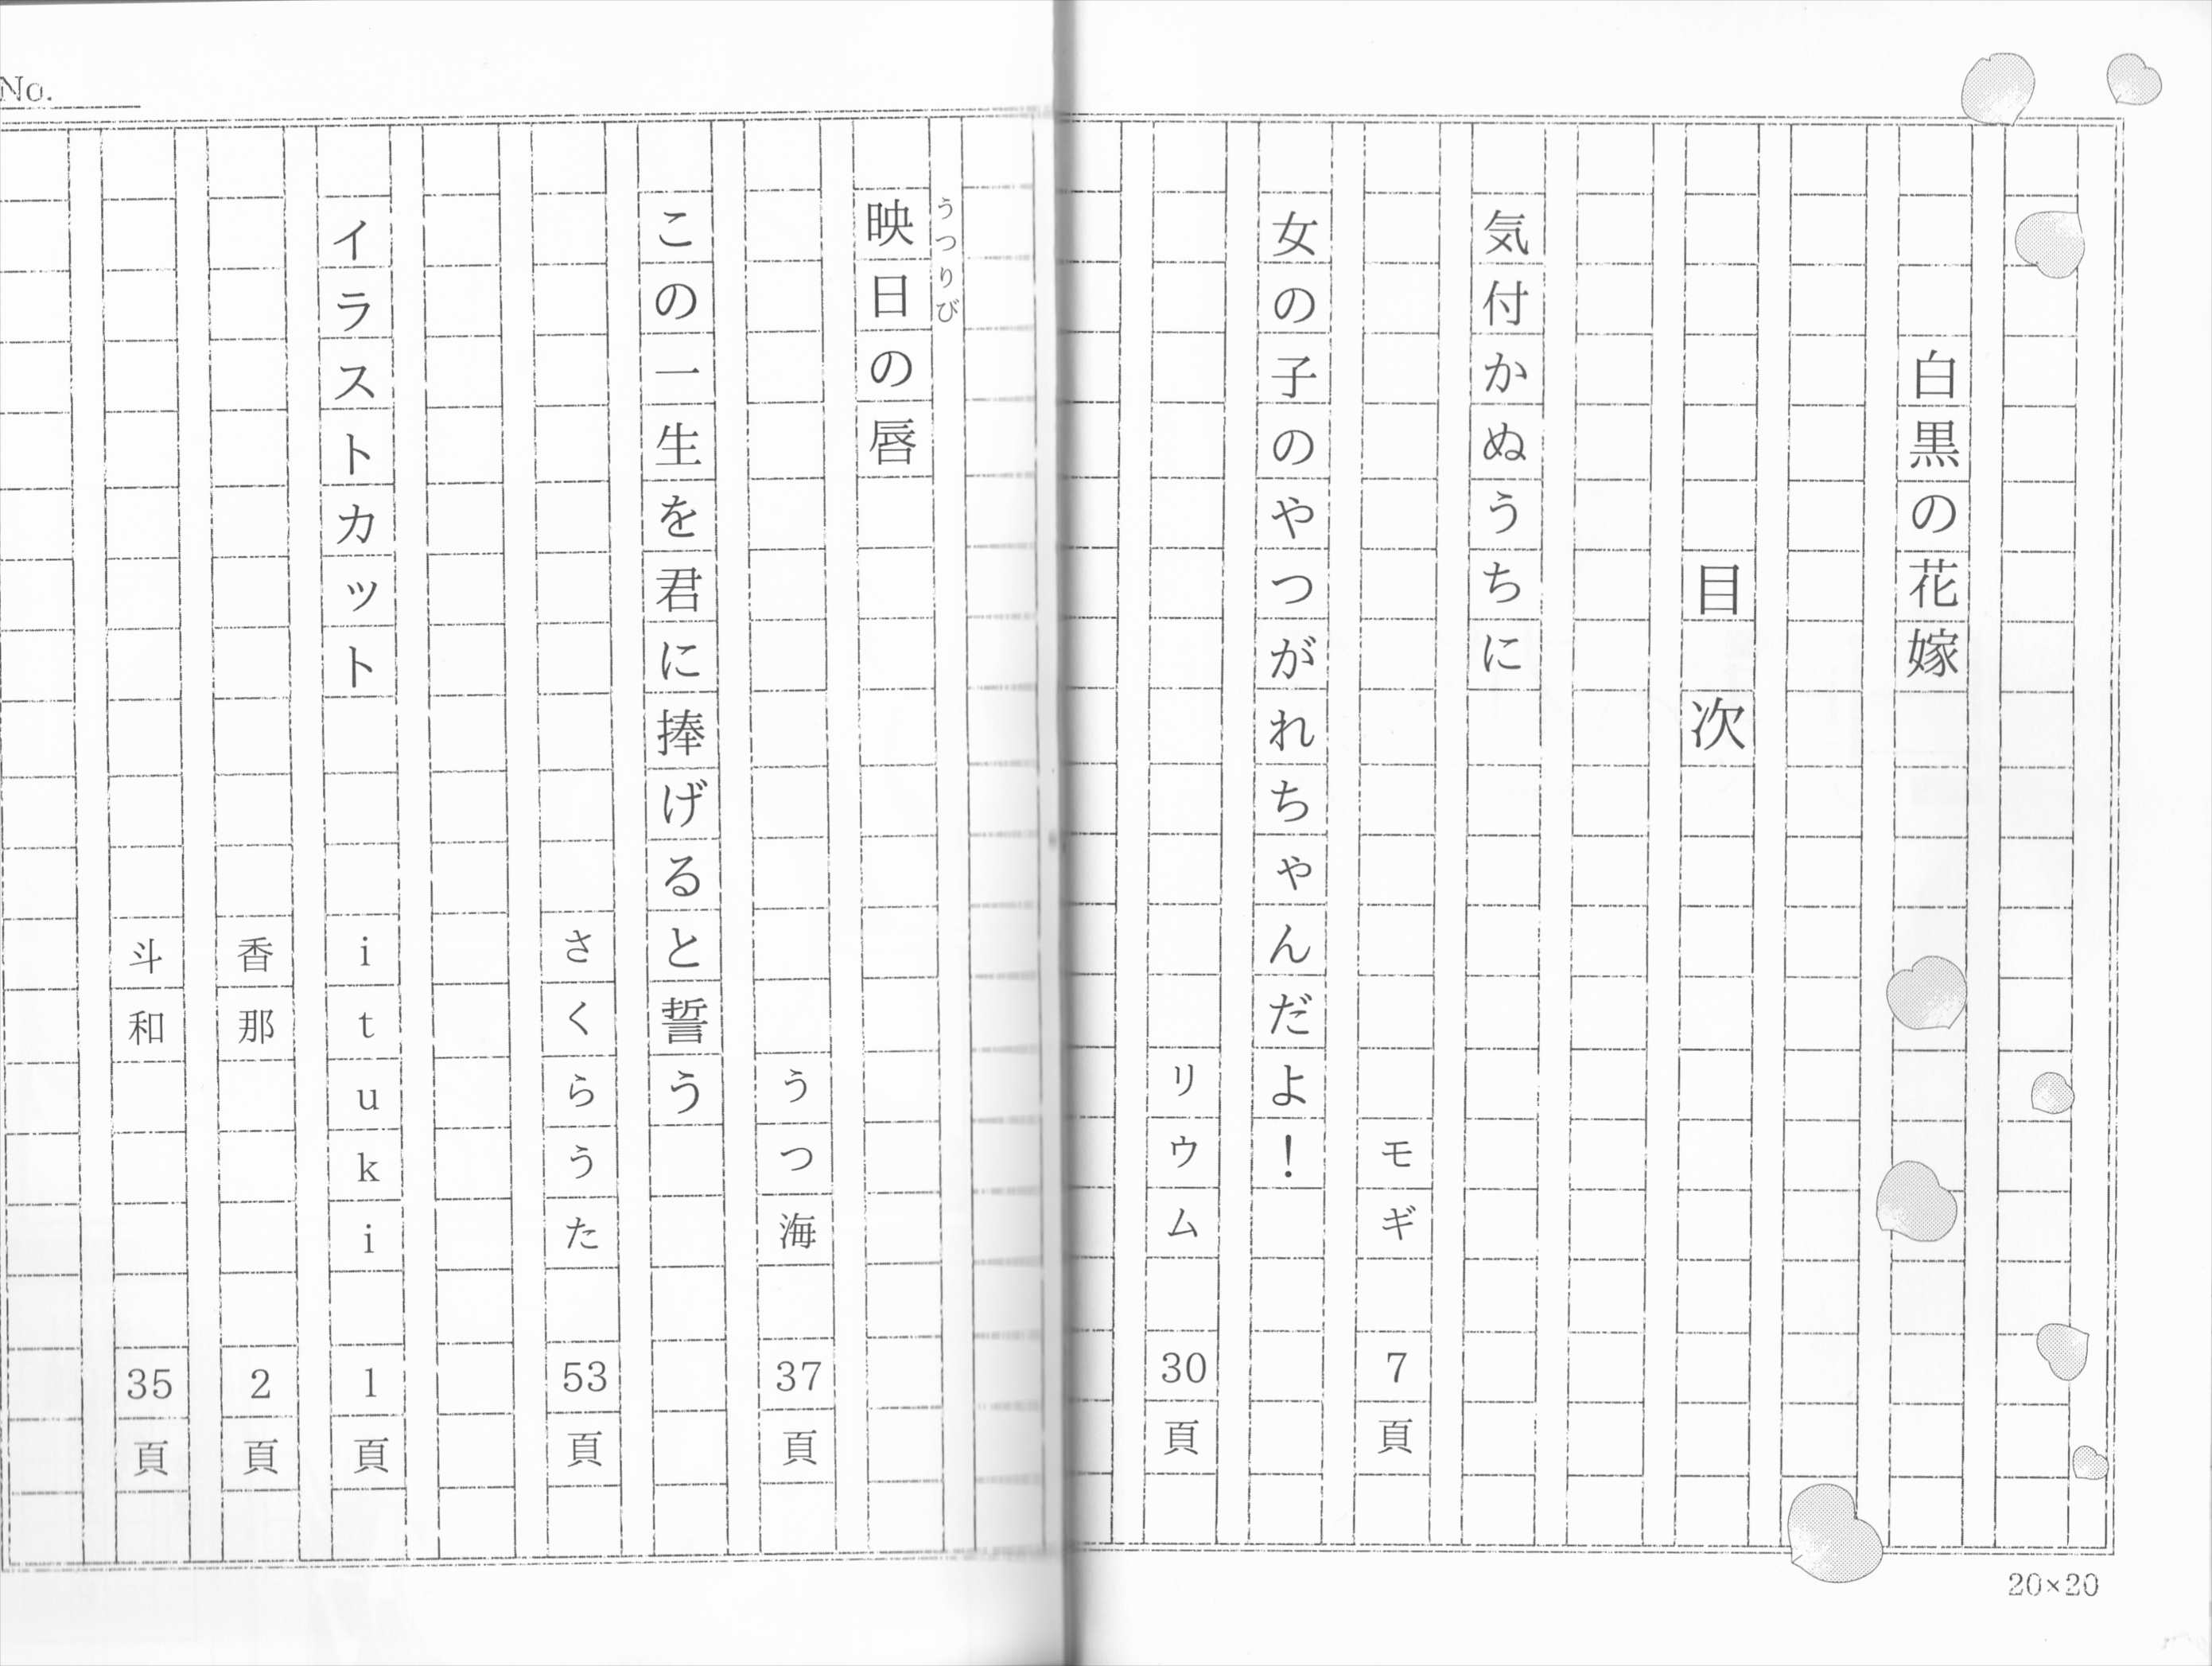 白黒の花嫁
目次
気付かぬうちに
モギ 7頁
女の子のやつがれちゃんだよ!
リウム 30頁
うつりび
映日の唇
うつ海 37頁
この一生を君に捧げると誓う
さくらうた 53頁
イラストカット
ituki 1頁
香那 2頁
斗和 35頁
No.
20×20